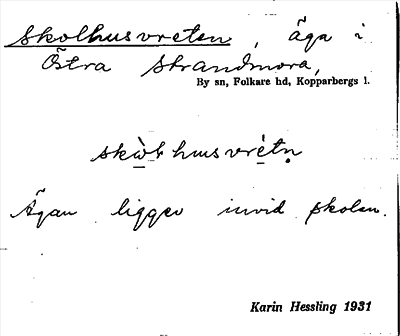 Skolhusvreten, äga i
Östra Strandmora,
By sn, Folkare hd, Kopparbergs l.
skò̠lhusvrè̠tn̥
Ägan ligger invid skolan.
Karin Hessling 1931